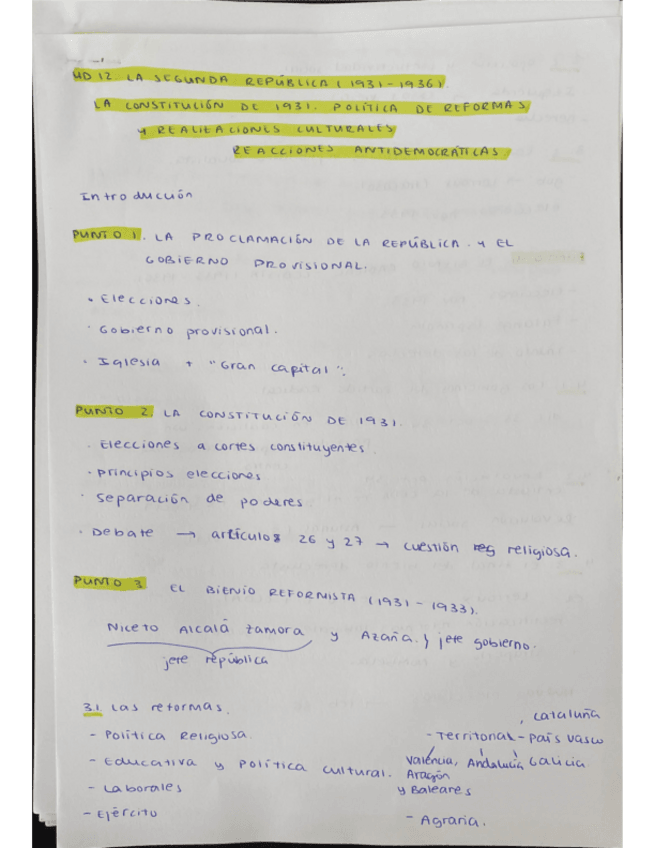 UD 12. LA SEGUNDA REPÚBLICA (1931-1936).
LA CONSTITUCIÓN DE 1931. POLÍTICA DE REFORMAS
Y REALIZACIONES CULTURALES
REACCIONES ANTIDEMOCRÁTICAS.
Introducción
PUNTO 1. LA PROCLAMACIÓN DE LA REPÚBLICA. Y EL
GOBIERNO PROVISIONAL.
· Elecciones.
· Gobierno provisional.
· Iglesia + "Gran capital".
PUNTO 2. LA CONSTITUCIÓN DE 1931.
· Elecciones a cortes constituyentes.
· principios elecciones
· Separación de poderes
· Debate → artículos 26 y 27 → cuestión reg religiosa.
PUNTO 3 EL BIENIO REFORMISTA (1931-1933).
Niceto Alcalá Zamora y Azaña. } jefe gobierno.
jefe república
3.1 Las reformas.
- Política Religiosa.
- Educativa y política cultural.
- Laborales
- Ejército
, cataluña
- Territorial - país vasco
Valéncia, Andalucía Galicia
Aragón
y Baleares
- Agraria.